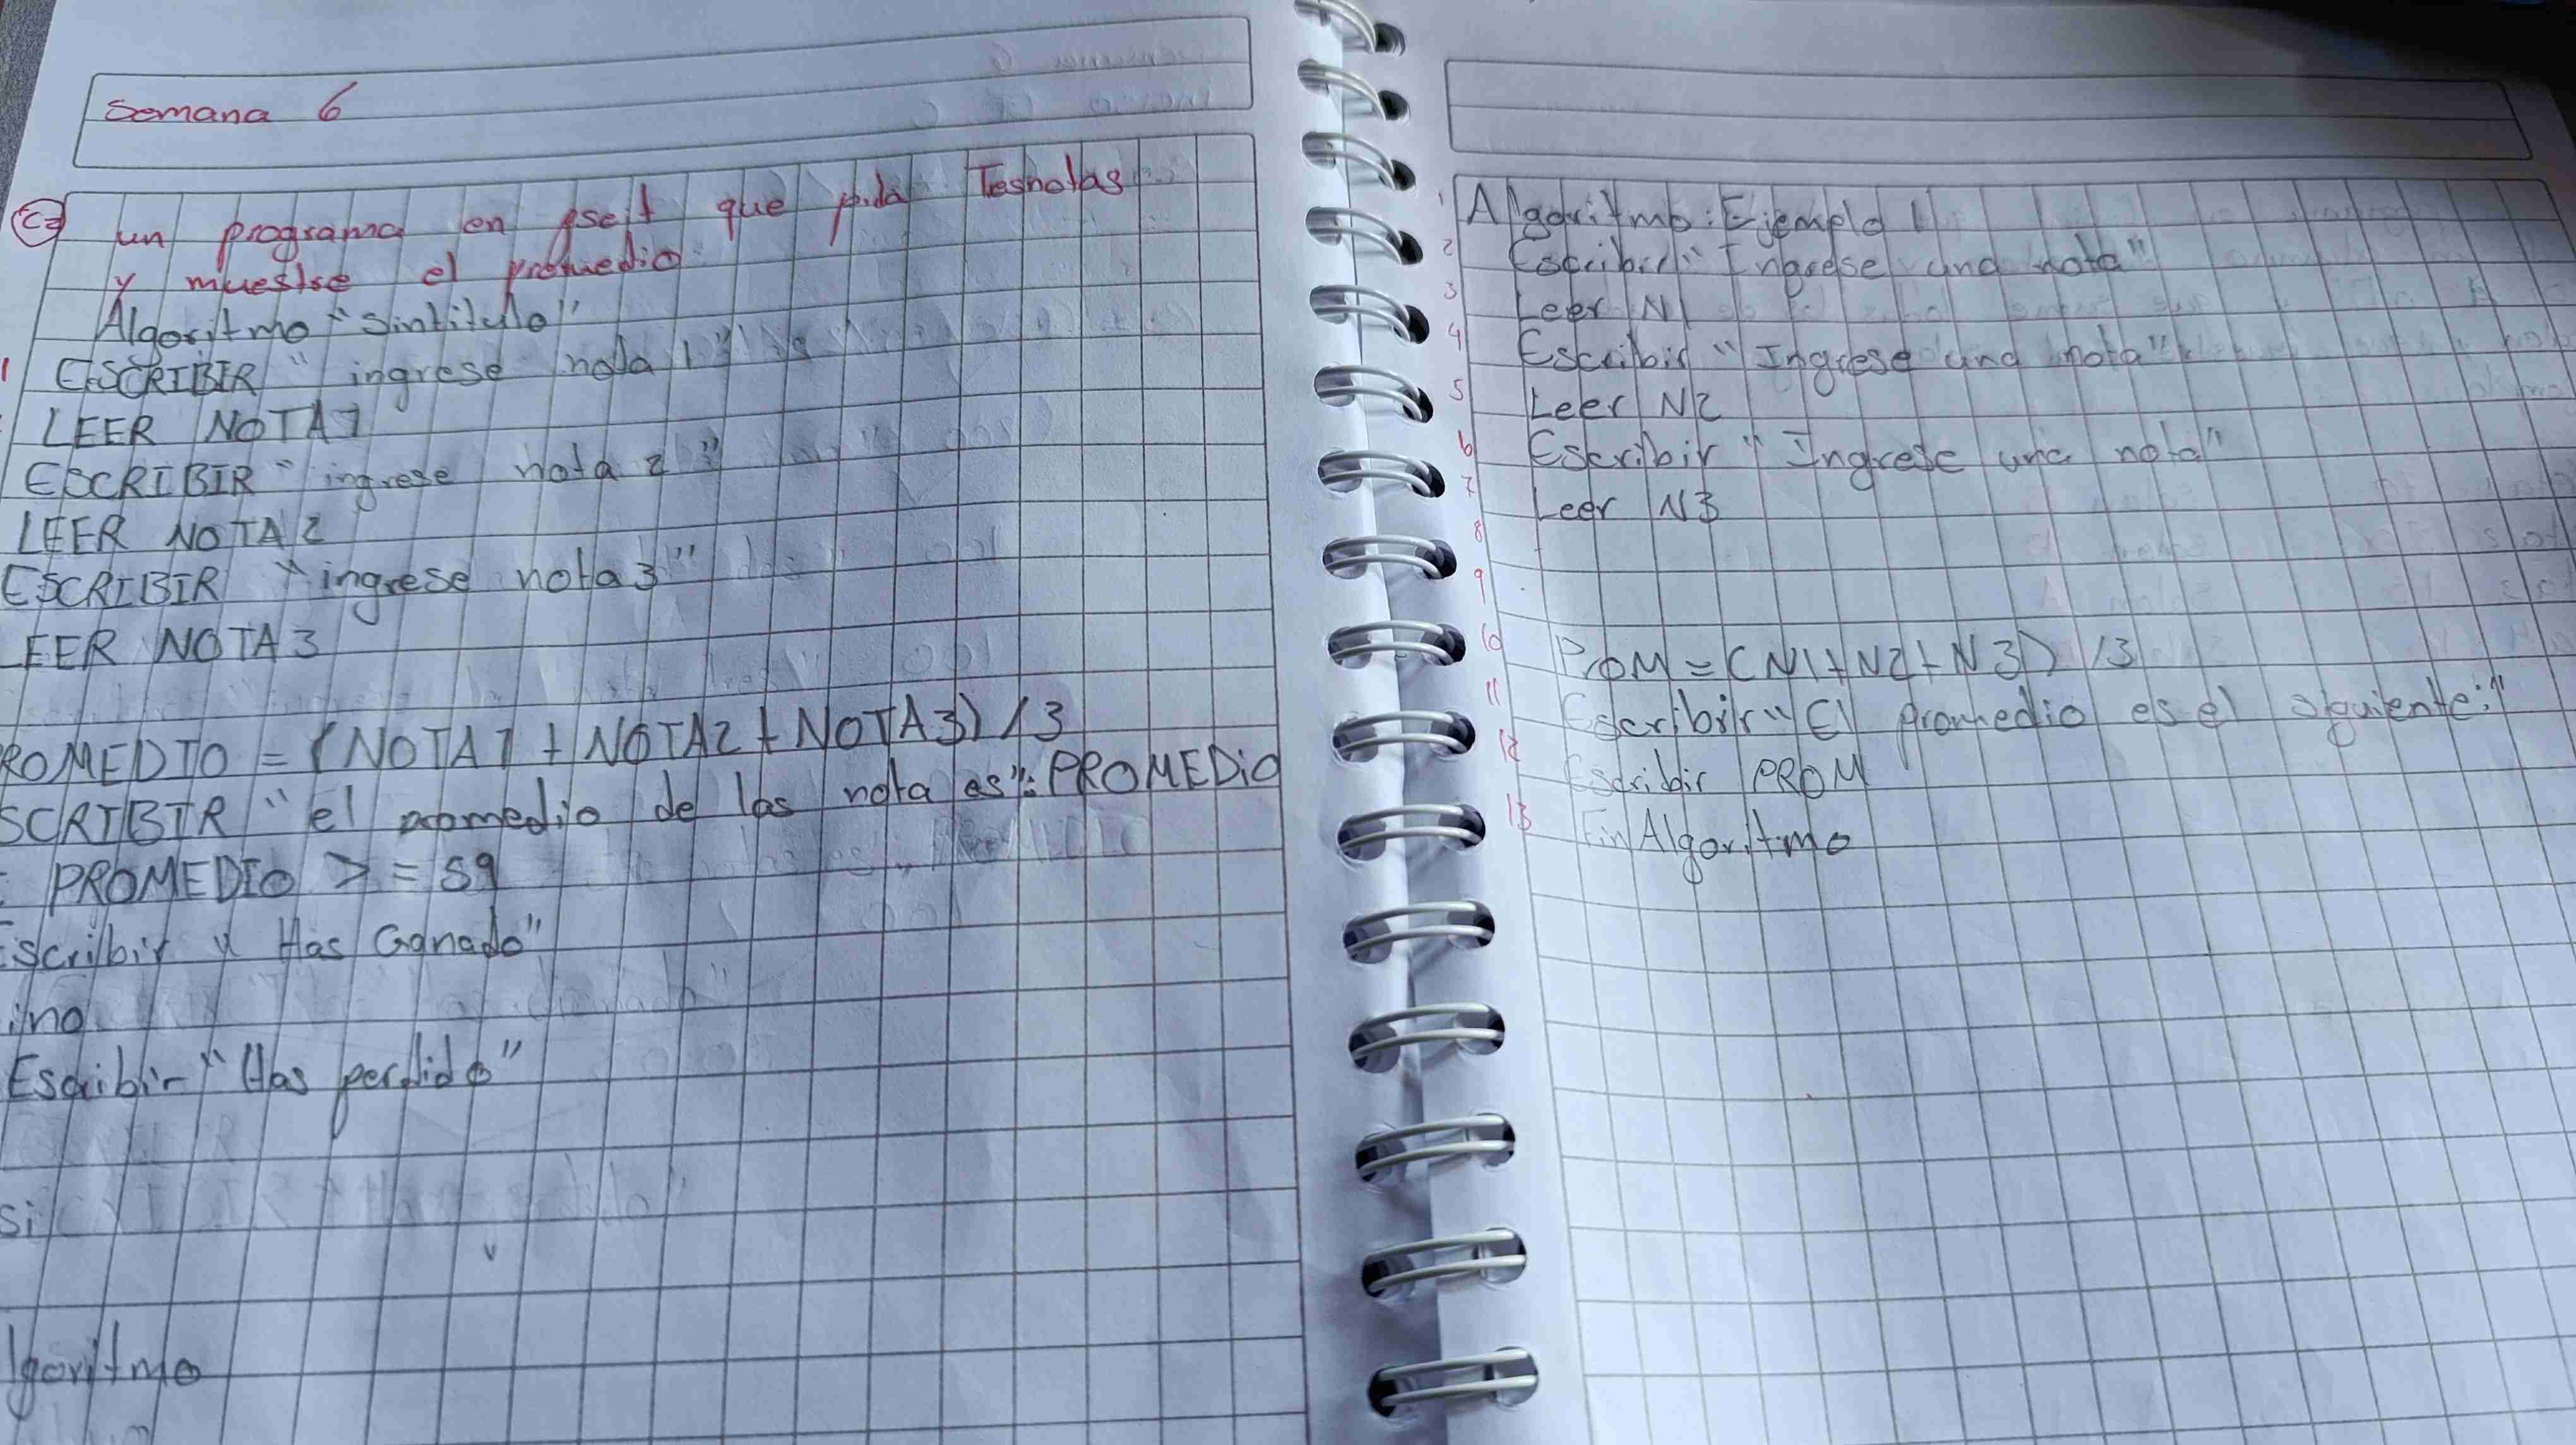 Semana 6
un programa en pseit que pida Tesnotas
y muestre el promedio
Algoritmo "Sintitulo"
1 ESCRIBIR "ingrese nota 1"
LEER NOTA1
ESCRIBIR "ingrese nota 2"
LEER NOTA2
ESCRIBIR "ingrese nota3"
EER NOTA3
ROMEDIO = (NOTA1 + NOTA2 + NOTA3) / 3
SCRIBIR "el promedio de las nota es": PROMEDIO
PROMEDIO >= 59
Escribir "Has Ganado"
ino
Escribir "Has perdido"
si
lgoritmo
1 Algoritmo: Ejemplo 1
2 Escribir "Ingrese una nota"
3 Leer N1
4 Escribir "Ingrese una nota"
5 Leer N2
6 Escribir "Ingrese una nota"
7 Leer N3
8
9
10 PROM = (N1+N2+N3) /3
11 Escribir "El promedio es el siguiente:"
12 Escribir PROM
13 FinAlgoritmo